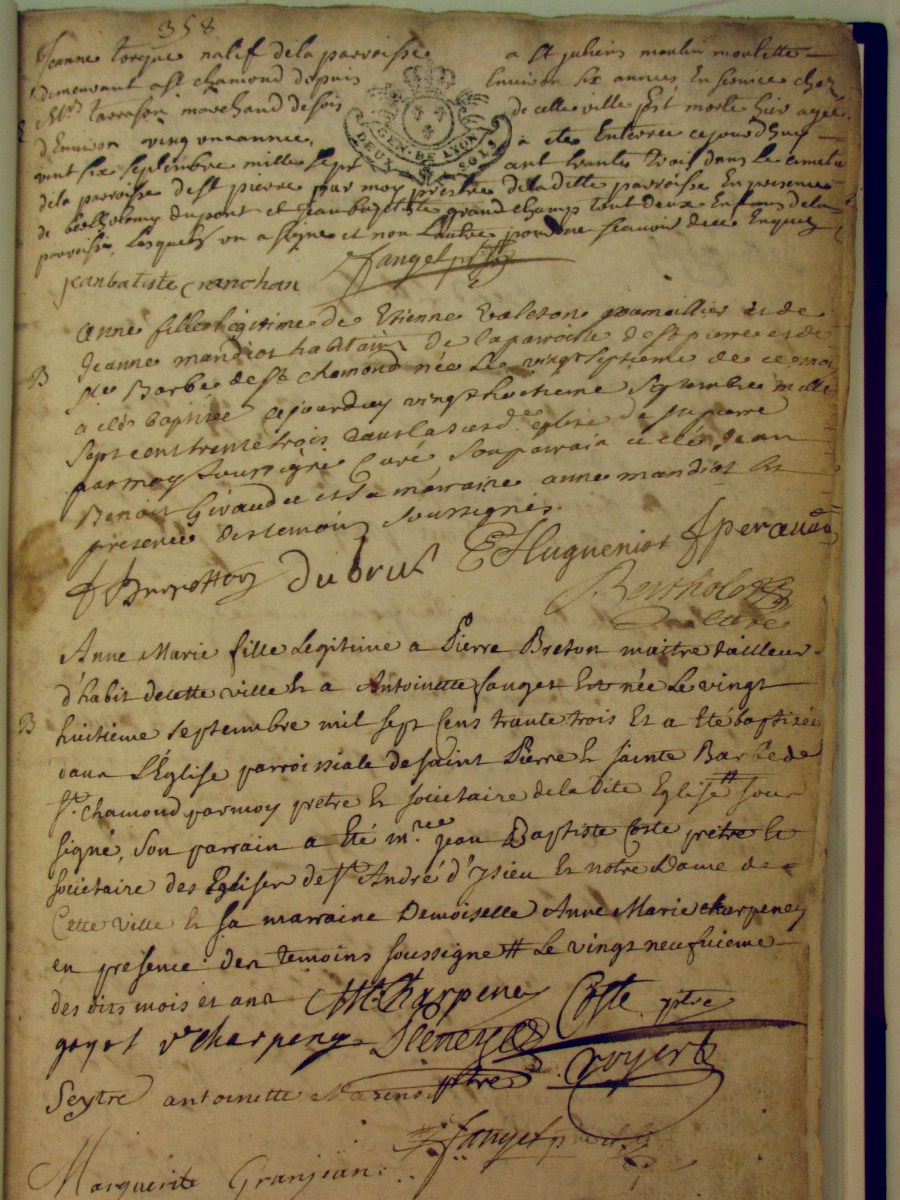 358
Jeanne torque natif de la parroisse a st juliens moulin moulette
demeurant a st chamond depuis Environ six annees En service chez
Mr tarrason marchand de sois de celle ville Est morte hier agee
d'Environ vingt une annee, a ete Enterree cejourdhuy
vint six septembre mille sept cent trante trois dans le
GEN. DE LYON
DEUX SOLS
de la parroisse de st pierre par moy prestre de la ditte parroisse En presence
de berthelemy dupont et Jean baptiste grand champ tout deux de la
parroisse, Lesquels un a signe et non L'autre pour ne scavoir de ce Enquis
jeanbatiste Granchan fanget ptre
Anne fille legitime de Etienne Valeton et de
Jeanne mandiot habitans de la paroisse de st pierre et de
B
ste Barbe de st chamond née Le vingt septieme de ce moi
a été baptisée cejourduy vingthuctieme septembre mille
sept cent trente trois dans la susde eglise de st pierre
par moy soussigné Curé son parrain a été Jean
Benoit Giraudet et sa marraine anne mandiot En
presence des temoins soussignés.
dubrut E Hugueniot
Bertholet
curé
Anne Marie fille Legitime a Pierre Breton maitre tailleur
d'habit de cette ville & a Antoinette fanget Est née Le vingt
B
huitieme septembre mil sept Cens trante trois Et a Eté baptisée
dans L'Église parroissiale de saint Pierre & sainte Barbe de
St. chamond par moy prêtre & societaire de la dite Eglise sous
signé, son parrain a Eté mre jean Baptiste Coste prêtre &
societaire des Eglises de st André d'Isieu & notre Dame de
Cette ville & sa marraine Demoiselle Anne Marie charpeney
en presence des temoins soussigne # Le vingt neufvieme
des dits mois et ans Charpeney Coste ptre
goyot vecharpeney ptre royer
Seytre antoinette fanget
Marguerite Granjean